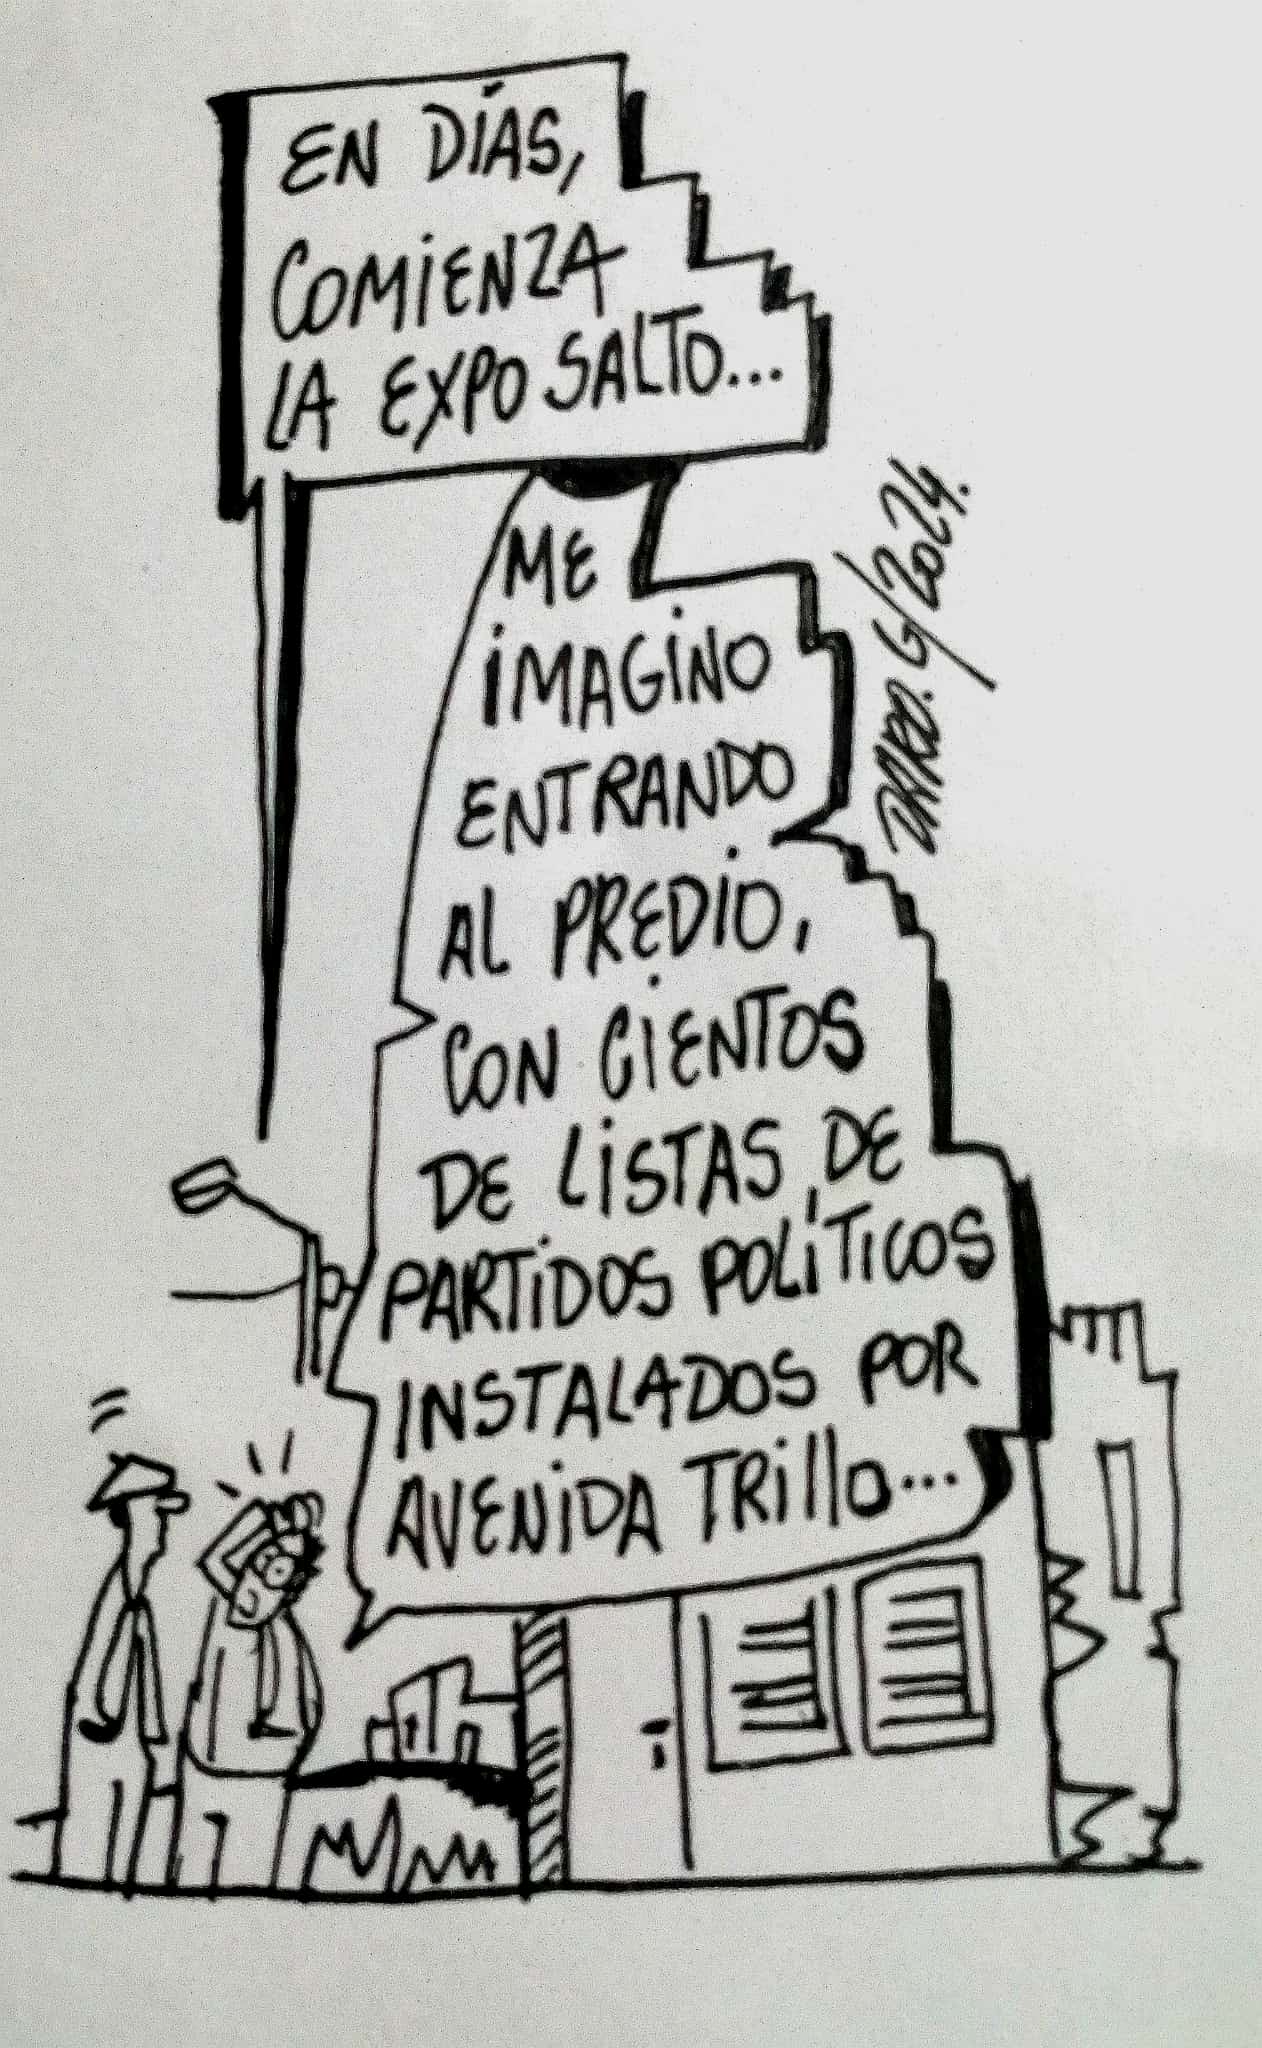 EN DÍAS,
COMIENZA
LA EXPO SALTO...
ME
IMAGINO
ENTRANDO
AL PREDIO,
CON CIENTOS
DE LISTAS DE
PARTIDOS POLÍTICOS
INSTALADOS POR
AVENIDA TRILLO...
DARDO. G/2024.